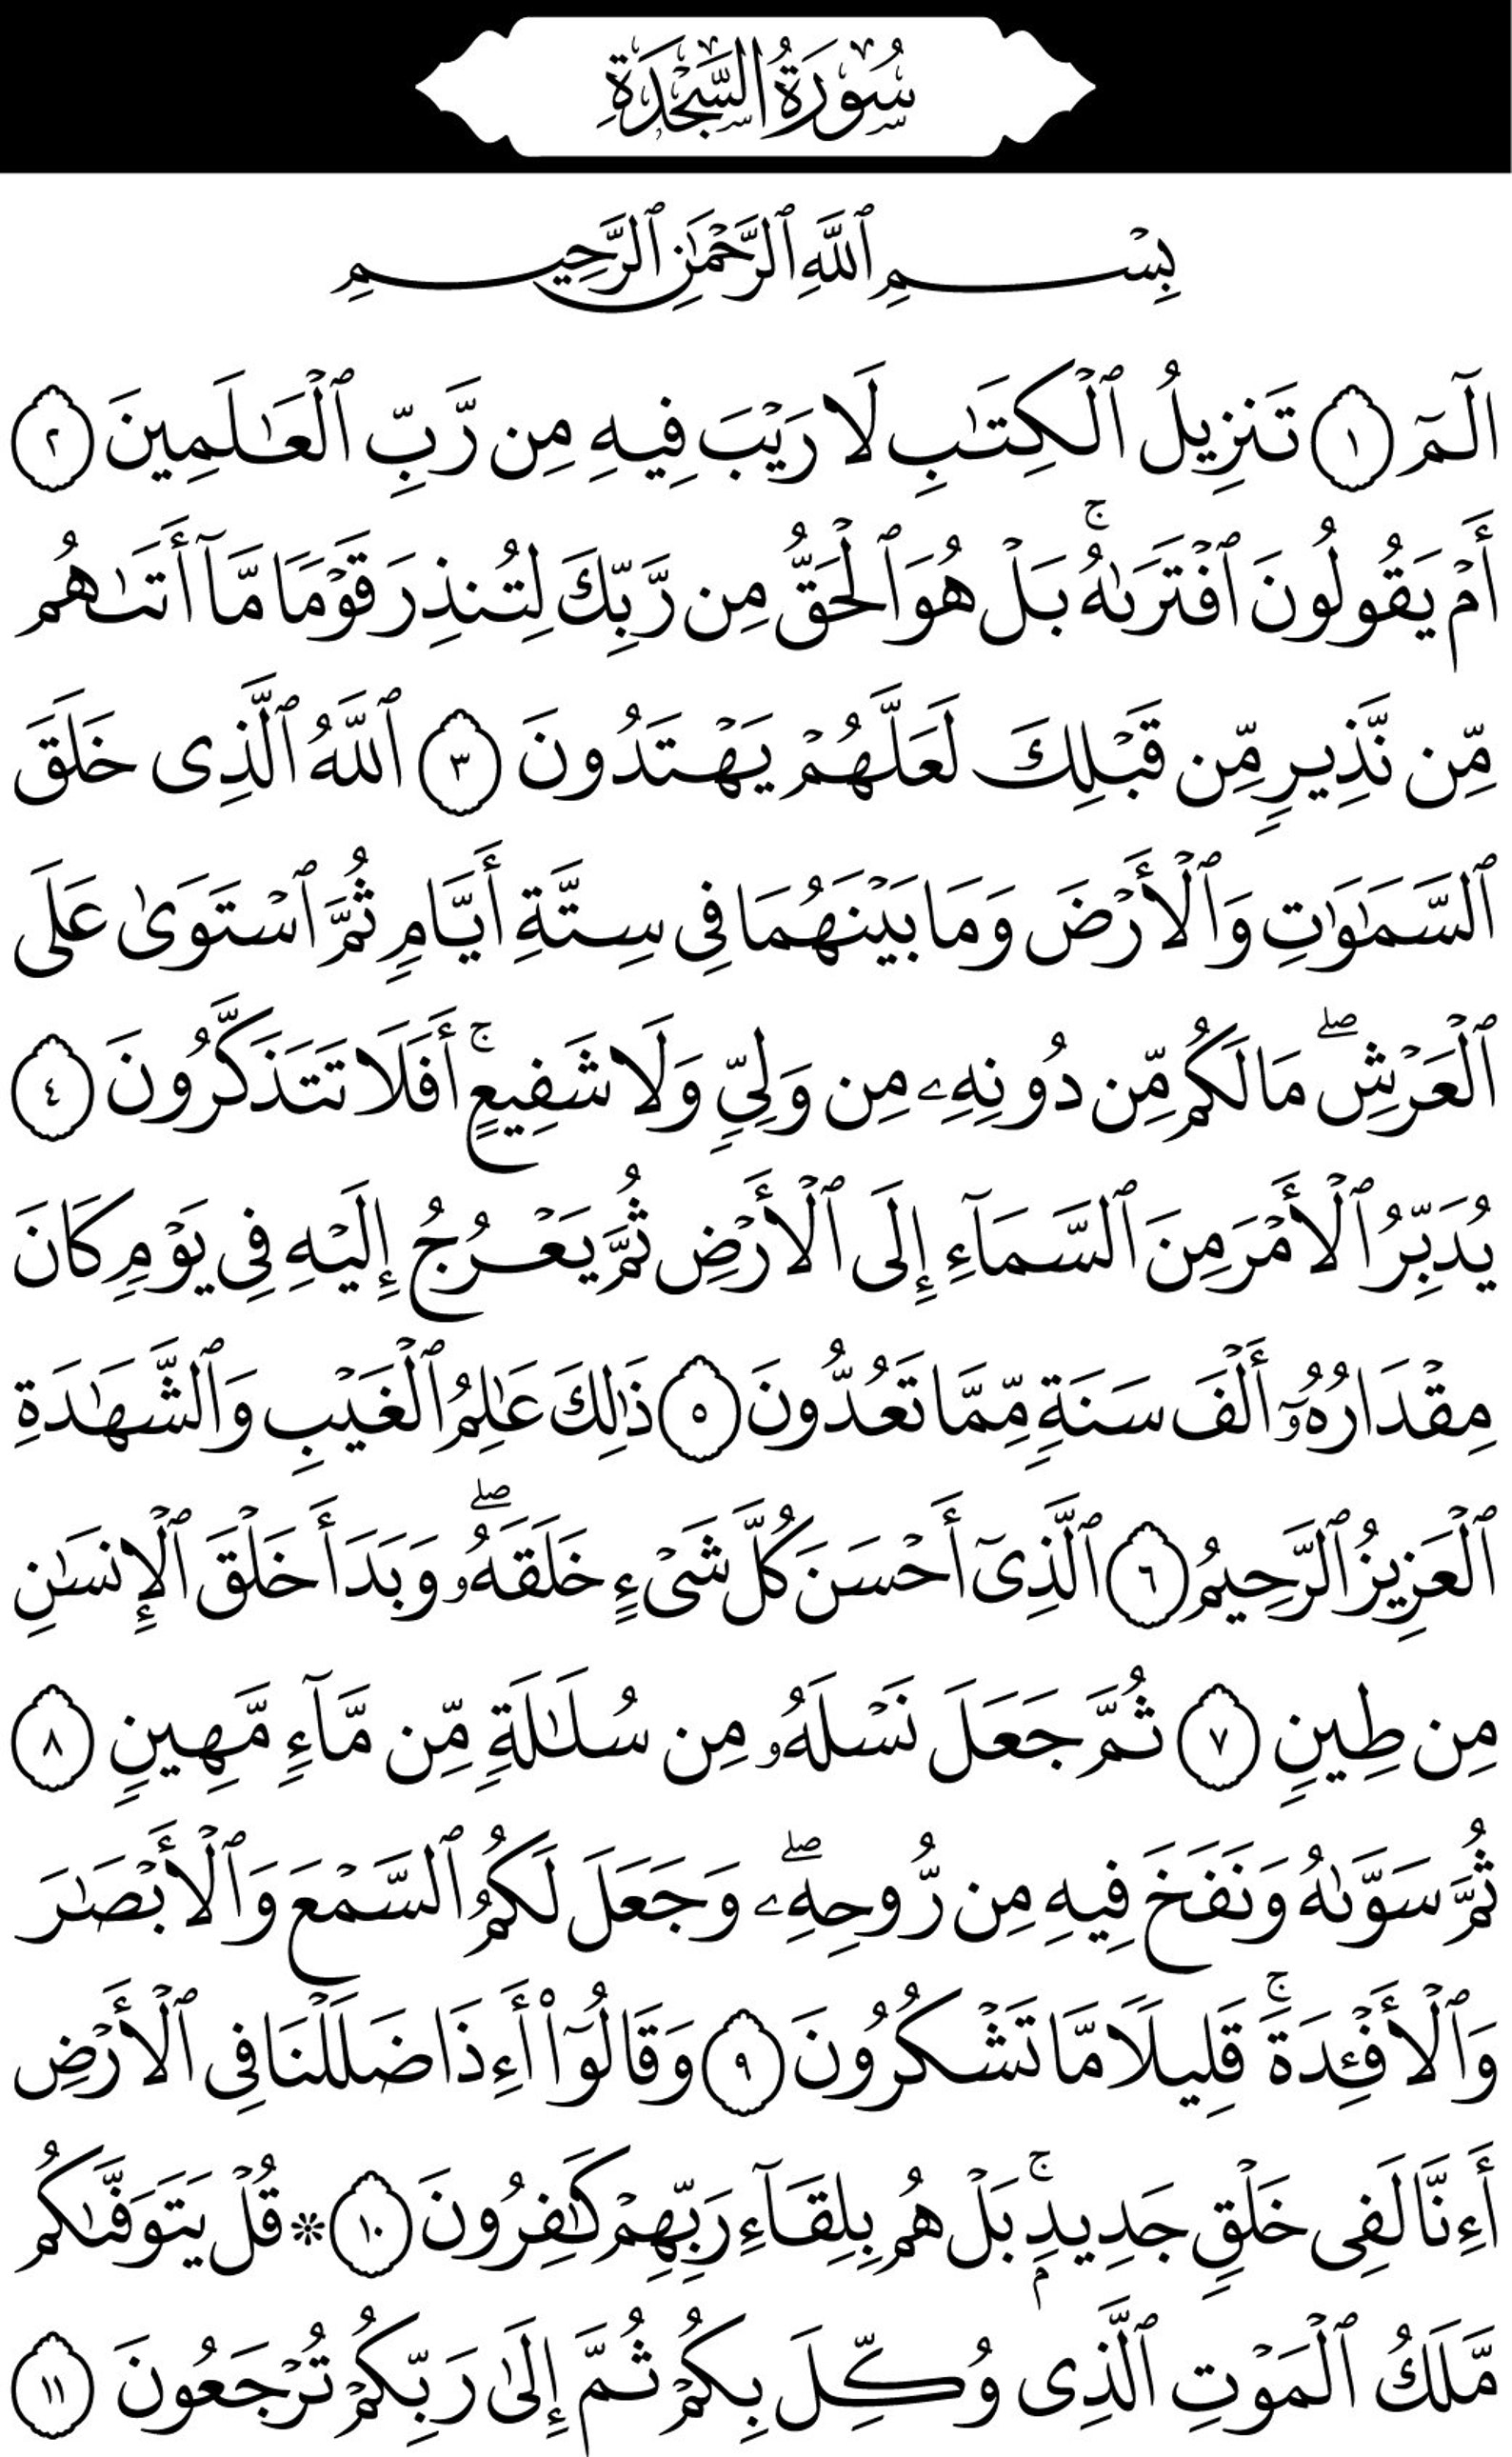 سُورَةُ السَّجْدَةِ
بِسْمِ ٱللَّهِ ٱلرَّحْمَٰنِ ٱلرَّحِيمِ
الٓمٓ ١ تَنزِيلُ ٱلْكِتَٰبِ لَا رَيْبَ فِيهِ مِن رَّبِّ ٱلْعَٰلَمِينَ ٢
أَمْ يَقُولُونَ ٱفْتَرَىٰهُ ۚ بَلْ هُوَ ٱلْحَقُّ مِن رَّبِّكَ لِتُنذِرَ قَوْمًا مَّآ أَتَىٰهُم
مِّن نَّذِيرٍ مِّن قَبْلِكَ لَعَلَّهُمْ يَهْتَدُونَ ٣ ٱللَّهُ ٱلَّذِى خَلَقَ
ٱلسَّمَٰوَٰتِ وَٱلْأَرْضَ وَمَا بَيْنَهُمَا فِى سِتَّةِ أَيَّامٍ ثُمَّ ٱسْتَوَىٰ عَلَى
ٱلْعَرْشِ ۖ مَا لَكُم مِّن دُونِهِۦ مِن وَلِىٍّ وَلَا شَفِيعٍ ۚ أَفَلَا تَتَذَكَّرُونَ ٤
يُدَبِّرُ ٱلْأَمْرَ مِنَ ٱلسَّمَآءِ إِلَى ٱلْأَرْضِ ثُمَّ يَعْرُجُ إِلَيْهِ فِى يَوْمٍ كَانَ
مِقْدَارُهُۥٓ أَلْفَ سَنَةٍ مِّمَّا تَعُدُّونَ ٥ ذَٰلِكَ عَٰلِمُ ٱلْغَيْبِ وَٱلشَّهَٰدَةِ
ٱلْعَزِيزُ ٱلرَّحِيمُ ٦ ٱلَّذِىٓ أَحْسَنَ كُلَّ شَىْءٍ خَلَقَهُۥ ۖ وَبَدَأَ خَلْقَ ٱلْإِنسَٰنِ
مِن طِينٍ ٧ ثُمَّ جَعَلَ نَسْلَهُۥ مِن سُلَٰلَةٍ مِّن مَّآءٍ مَّهِينٍ ٨
ثُمَّ سَوَّىٰهُ وَنَفَخَ فِيهِ مِن رُّوحِهِۦ ۖ وَجَعَلَ لَكُمُ ٱلسَّمْعَ وَٱلْأَبْصَٰرَ
وَٱلْأَفْـِٔدَةَ ۚ قَلِيلًا مَّا تَشْكُرُونَ ٩ وَقَالُوٓا۟ أَءِذَا ضَلَلْنَا فِى ٱلْأَرْضِ
أَءِنَّا لَفِى خَلْقٍ جَدِيدٍۭ ۚ بَلْ هُم بِلِقَآءِ رَبِّهِمْ كَٰفِرُونَ ١٠ * قُلْ يَتَوَفَّىٰكُم
مَّلَكُ ٱلْمَوْتِ ٱلَّذِى وُكِّلَ بِكُمْ ثُمَّ إِلَىٰ رَبِّكُمْ تُرْجَعُونَ ١١